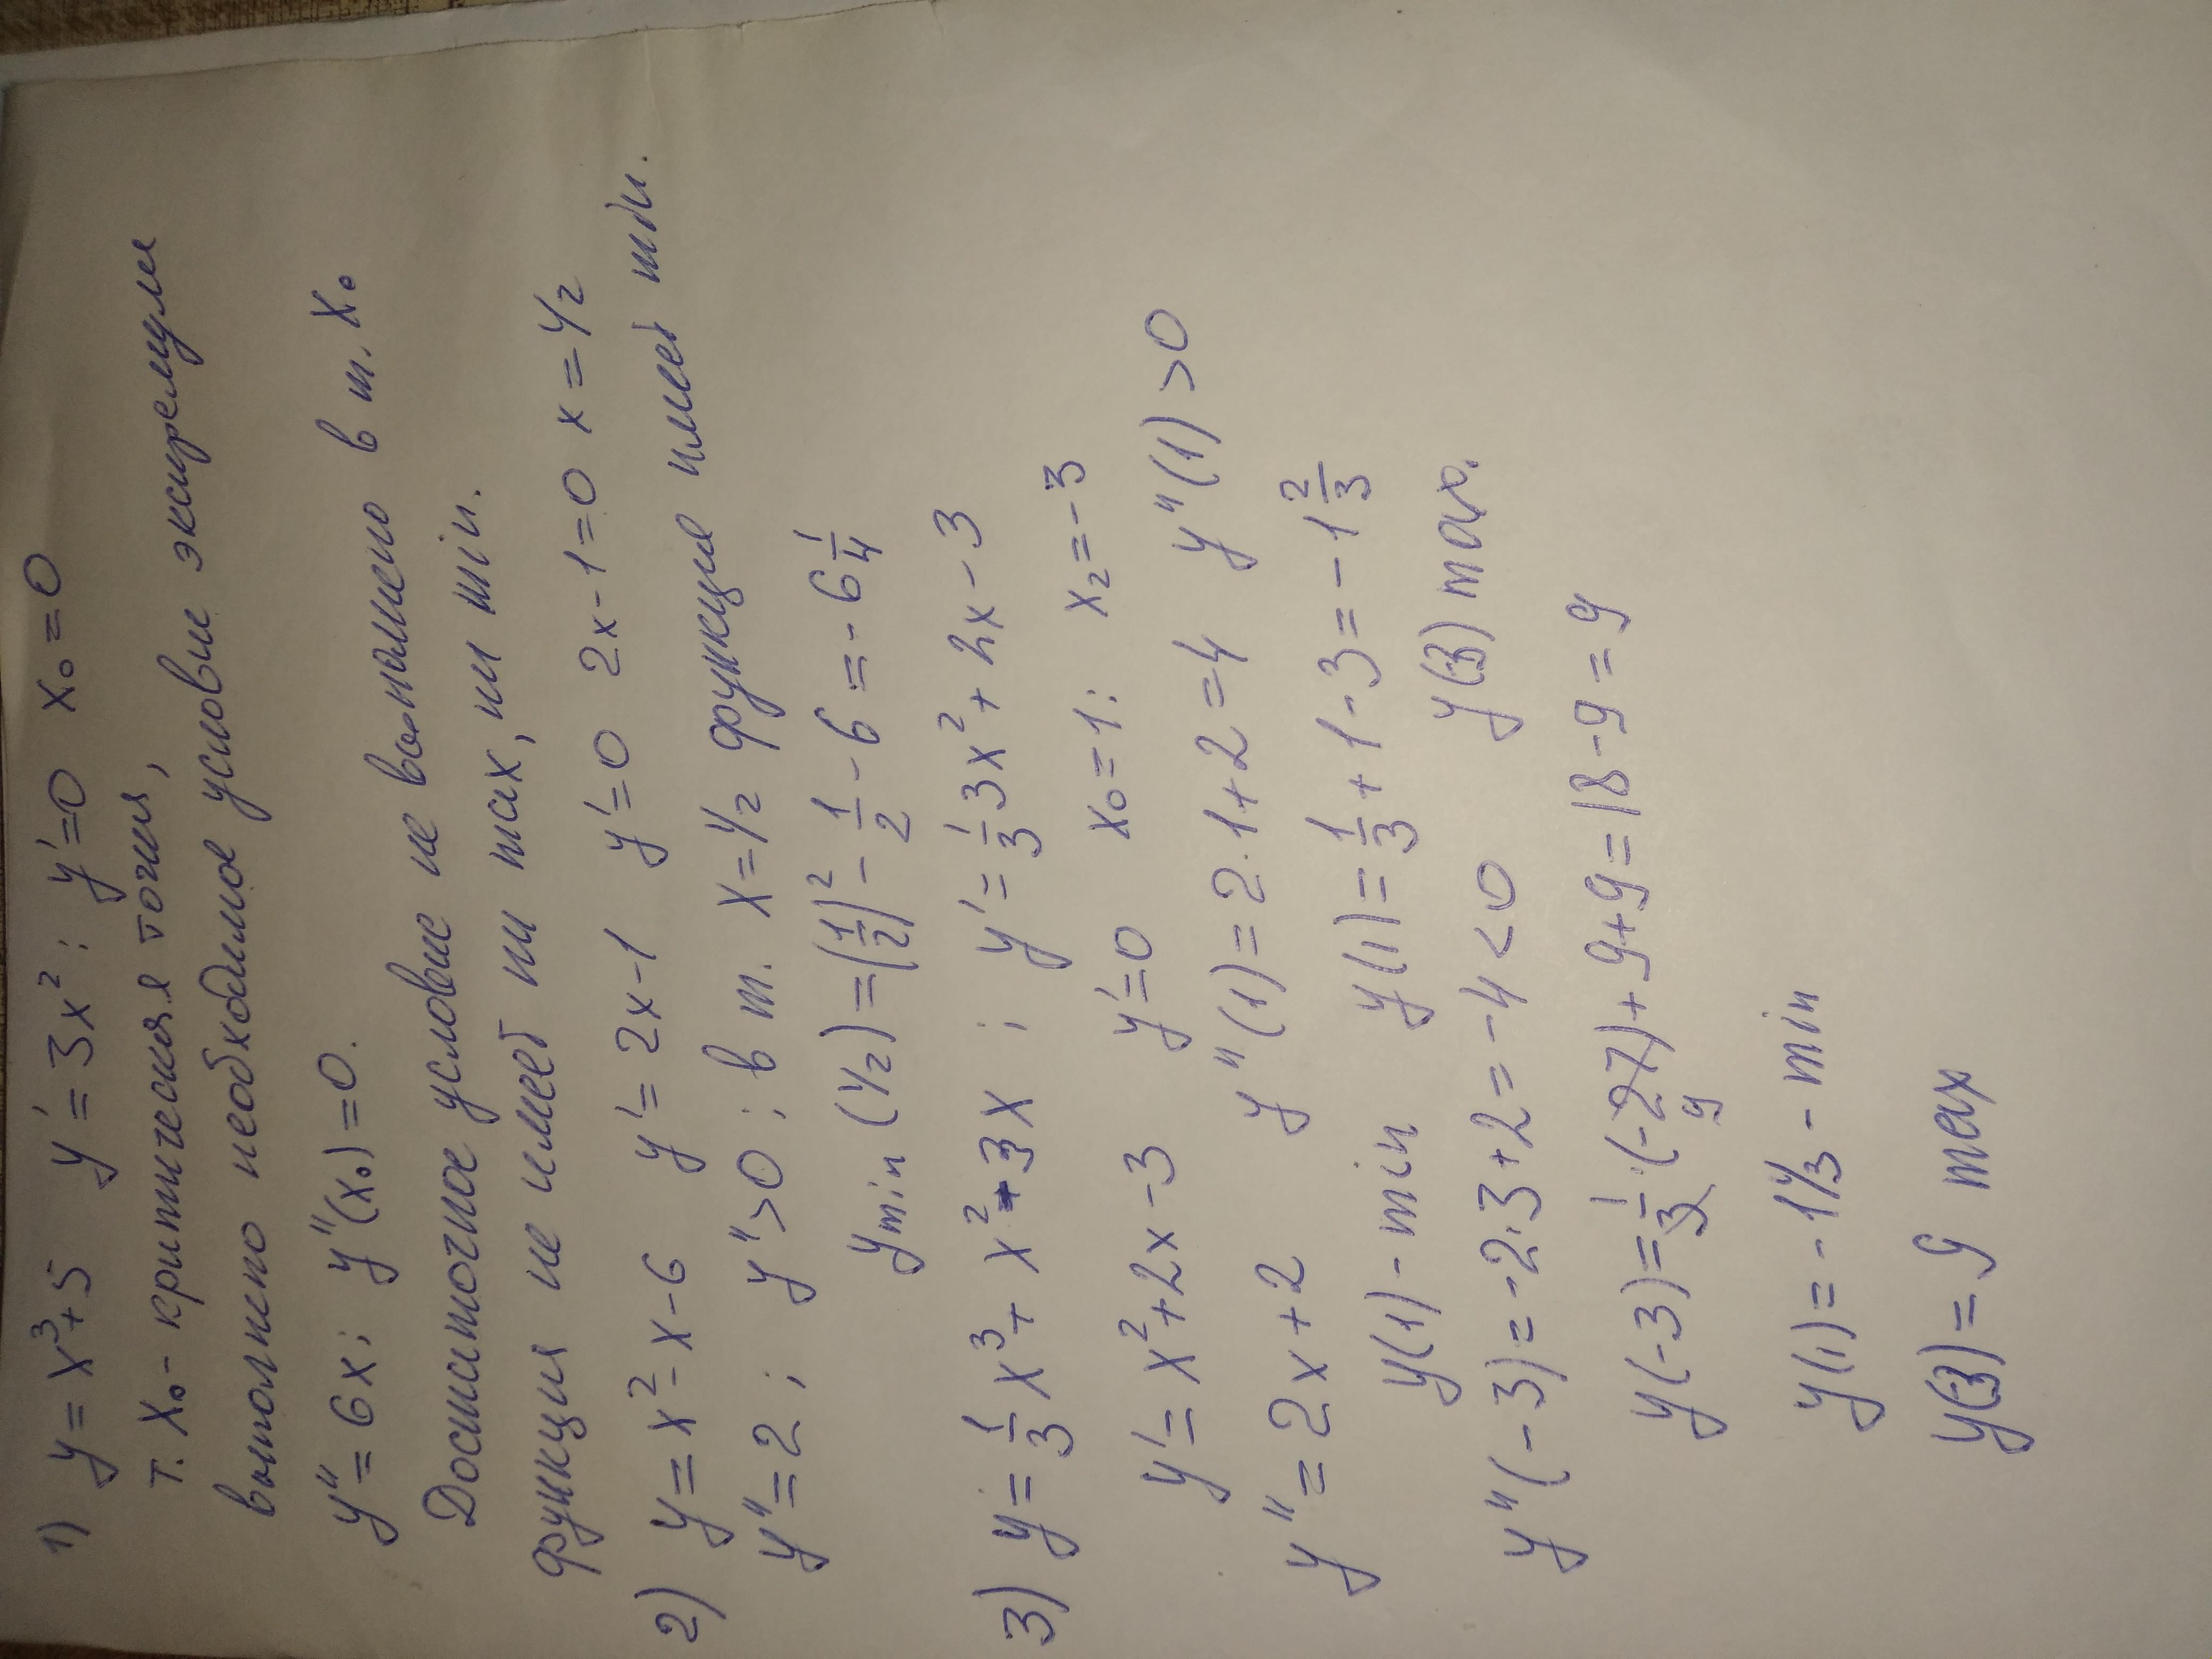 1) y = x³+5 y' = 3x²; y'=0 x₀=0
т. x₀ - критическая точка,
выполнено необходимое условие экстремума
y" = 6x; y"(x₀) = 0.
Достаточное условие не выполнено в т. x₀
функция не имеет ни max, ни min.
2) y = x²-x-6 y' = 2x-1 y'=0 2x-1=0 x=1/2
y"=2; y">0; в т. x=1/2 функция имеет min.
y min (1/2) = (1/2)² - 1/2 - 6 = -6 1/4
3) y = 1/3 x³ + x² - 3x; y' = 1/3 3x² + 2x - 3
y' = x²+2x-3 y'=0 x₀=1; x₂=-3
y" = 2x+2 y"(1) = 2·1+2=4 y"(1)>0
y(1) - min y(1) = 1/3 + 1 - 3 = -1 2/3
y"(-3) = -2·3+2 = -4 < 0 y(-3) max.
y(-3) = 1/3·(-27)+9+9 = 18-9 = 9
9
y(1) = -1 2/3 - min
y(-3) = 9 max